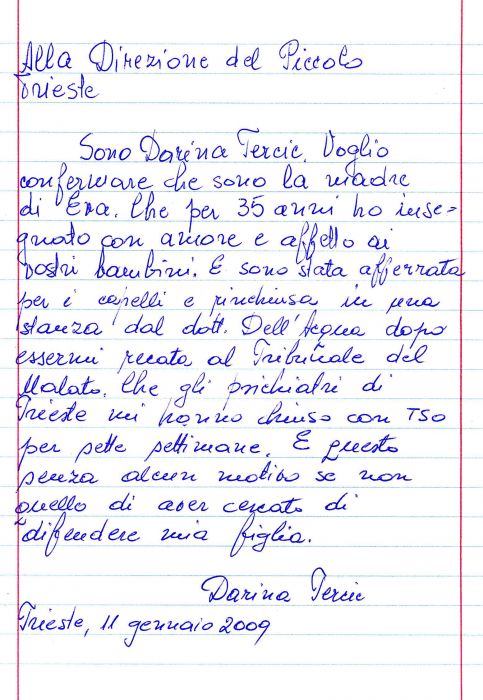 Alla Direzione del Piccolo
Trieste
Sono Darina Tercic. Voglio
confermare che sono la madre
di Eva. Che per 35 anni ho inse-
gnato con amore e affetto ai
vostri bambini. E sono stata afferrata
per i capelli e rinchiusa in una
stanza dal dott. Dell'Acqua dopo
essermi recata al Tribunale del
Malato. Che gli psichiatri di
Trieste mi hanno chiuso con TSO
per sette settimane. E questo
senza alcun motivo se non
quello di aver cercato di
difendere mia figlia.
Darina Tercic
Trieste, 11 gennaio 2009